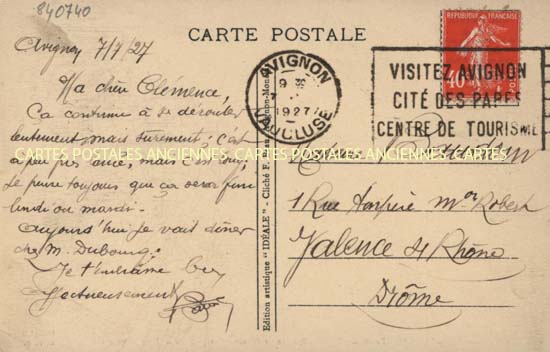 840740
CARTE POSTALE
Avignon 7/7/27
Ma chère Clémence,
Ça continue à se dérouler
lentement mais surement; c'est
à peu près
mais c'est long,
Je pense toujours que ça sera fini
lundi ou mardi.
Aujourd'hui je vais dîner
chez M. Dubourg.
Je t'embrasse bien
affectueusement
REPUBLIQUE FRANÇAISE
40
POSTES
AVIGNON
9
7
1927
VAUCLUSE
VISITEZ AVIGNON
CITÉ DES PAPES
CENTRE DE TOURISME
CARTES POSTALES ANCIENNES CARTES POSTALES ANCIENNES CARTES
1 Rue
Mor Robert
Valence s/ Rhône
Drôme
Edition artistique "IDÉALE" - Cliché F.